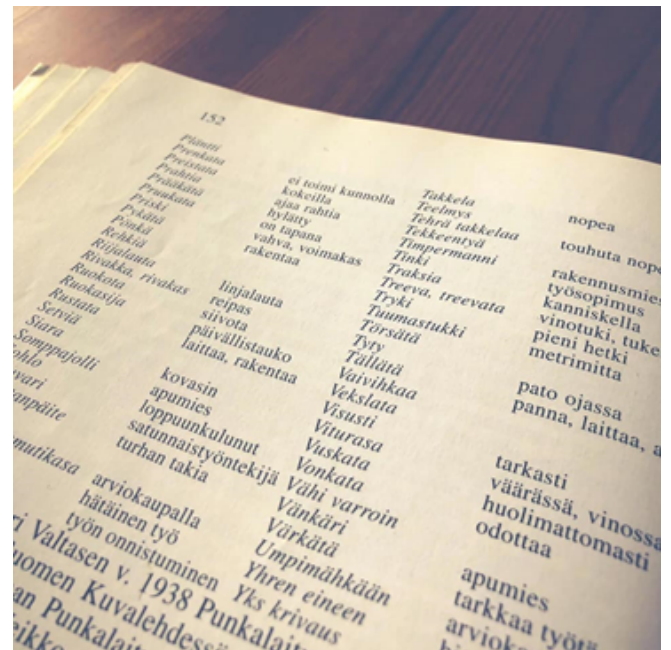 152
Pläntti
Prenkata
Preistata
Prahtia
Prääkätä
Pruukata
Priski
Pykätä
Pönkä
Rehkiä
Riijalauta
Rivakka, rivakas
Ruokota
Ruokasija
Rustata
Siara
Somppajolli
ohlo
vari
anpäite
mutikasa
ei toimi kunnolla
kokeilla
ajaa rahtia
hylätty
on tapana
vahva, voimakas
rakentaa
linjalauta
reipas
siivota
päivällistauko
laittaa, rakentaa
kovasin
apumies
loppuunkulunut
satunnaistyöntekijä
turhan takia
arviokaupalla
hätäinen työ
työn onnistuminen
Takkela
Teelmys
Tehrä takkelaa
Tekkeentyä
Timpermanni
Tinki
Traksia
Treeva, treevata
Tryki
Tuumastukki
Törsätä
Tyty
Tällätä
Vaivihkaa
Vekslata
Visusti
Viturasa
Vuskata
Vonkata
Vähi varroin
Vänkäri
Värkätä
Umpimähkään
Yhren eineen
Yks krivaus
nopea
touhuta nope
rakennusmies
työsopimus
kanniskella
vinotuki, tuke
pieni hetki
metrimitta
pato ojassa
panna, laittaa, a
tarkasti
väärässä, vinossa
huolimattomasti
odottaa
apumies
tarkkaa työtä
arvioka
ri Valtasen v. 1938 Punkalait
uomen Kuvalehdessä
an Punkalait
eikko